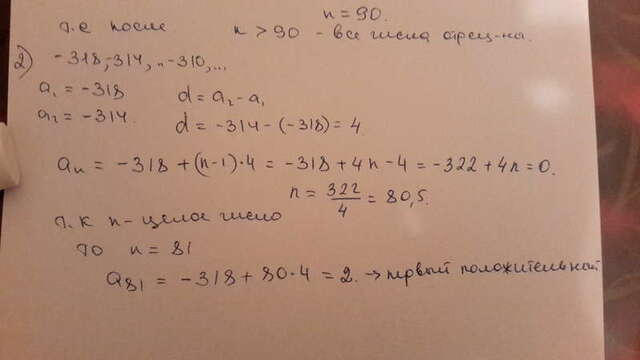 n = 90.
т.е после n > 90 - все числа отриц-ны.
2) -318, -314, -310, ...
a₁ = -318 d = a₂ - a₁
a₂ = -314. d = -314 - (-318) = 4.
aₙ = -318 + (n-1)·4 = -318 + 4n - 4 = -322 + 4n = 0.
n = 322/4 = 80,5.
т.к n - целое число
то n = 81
a₈₁ = -318 + 80·4 = 2. → первый положительный